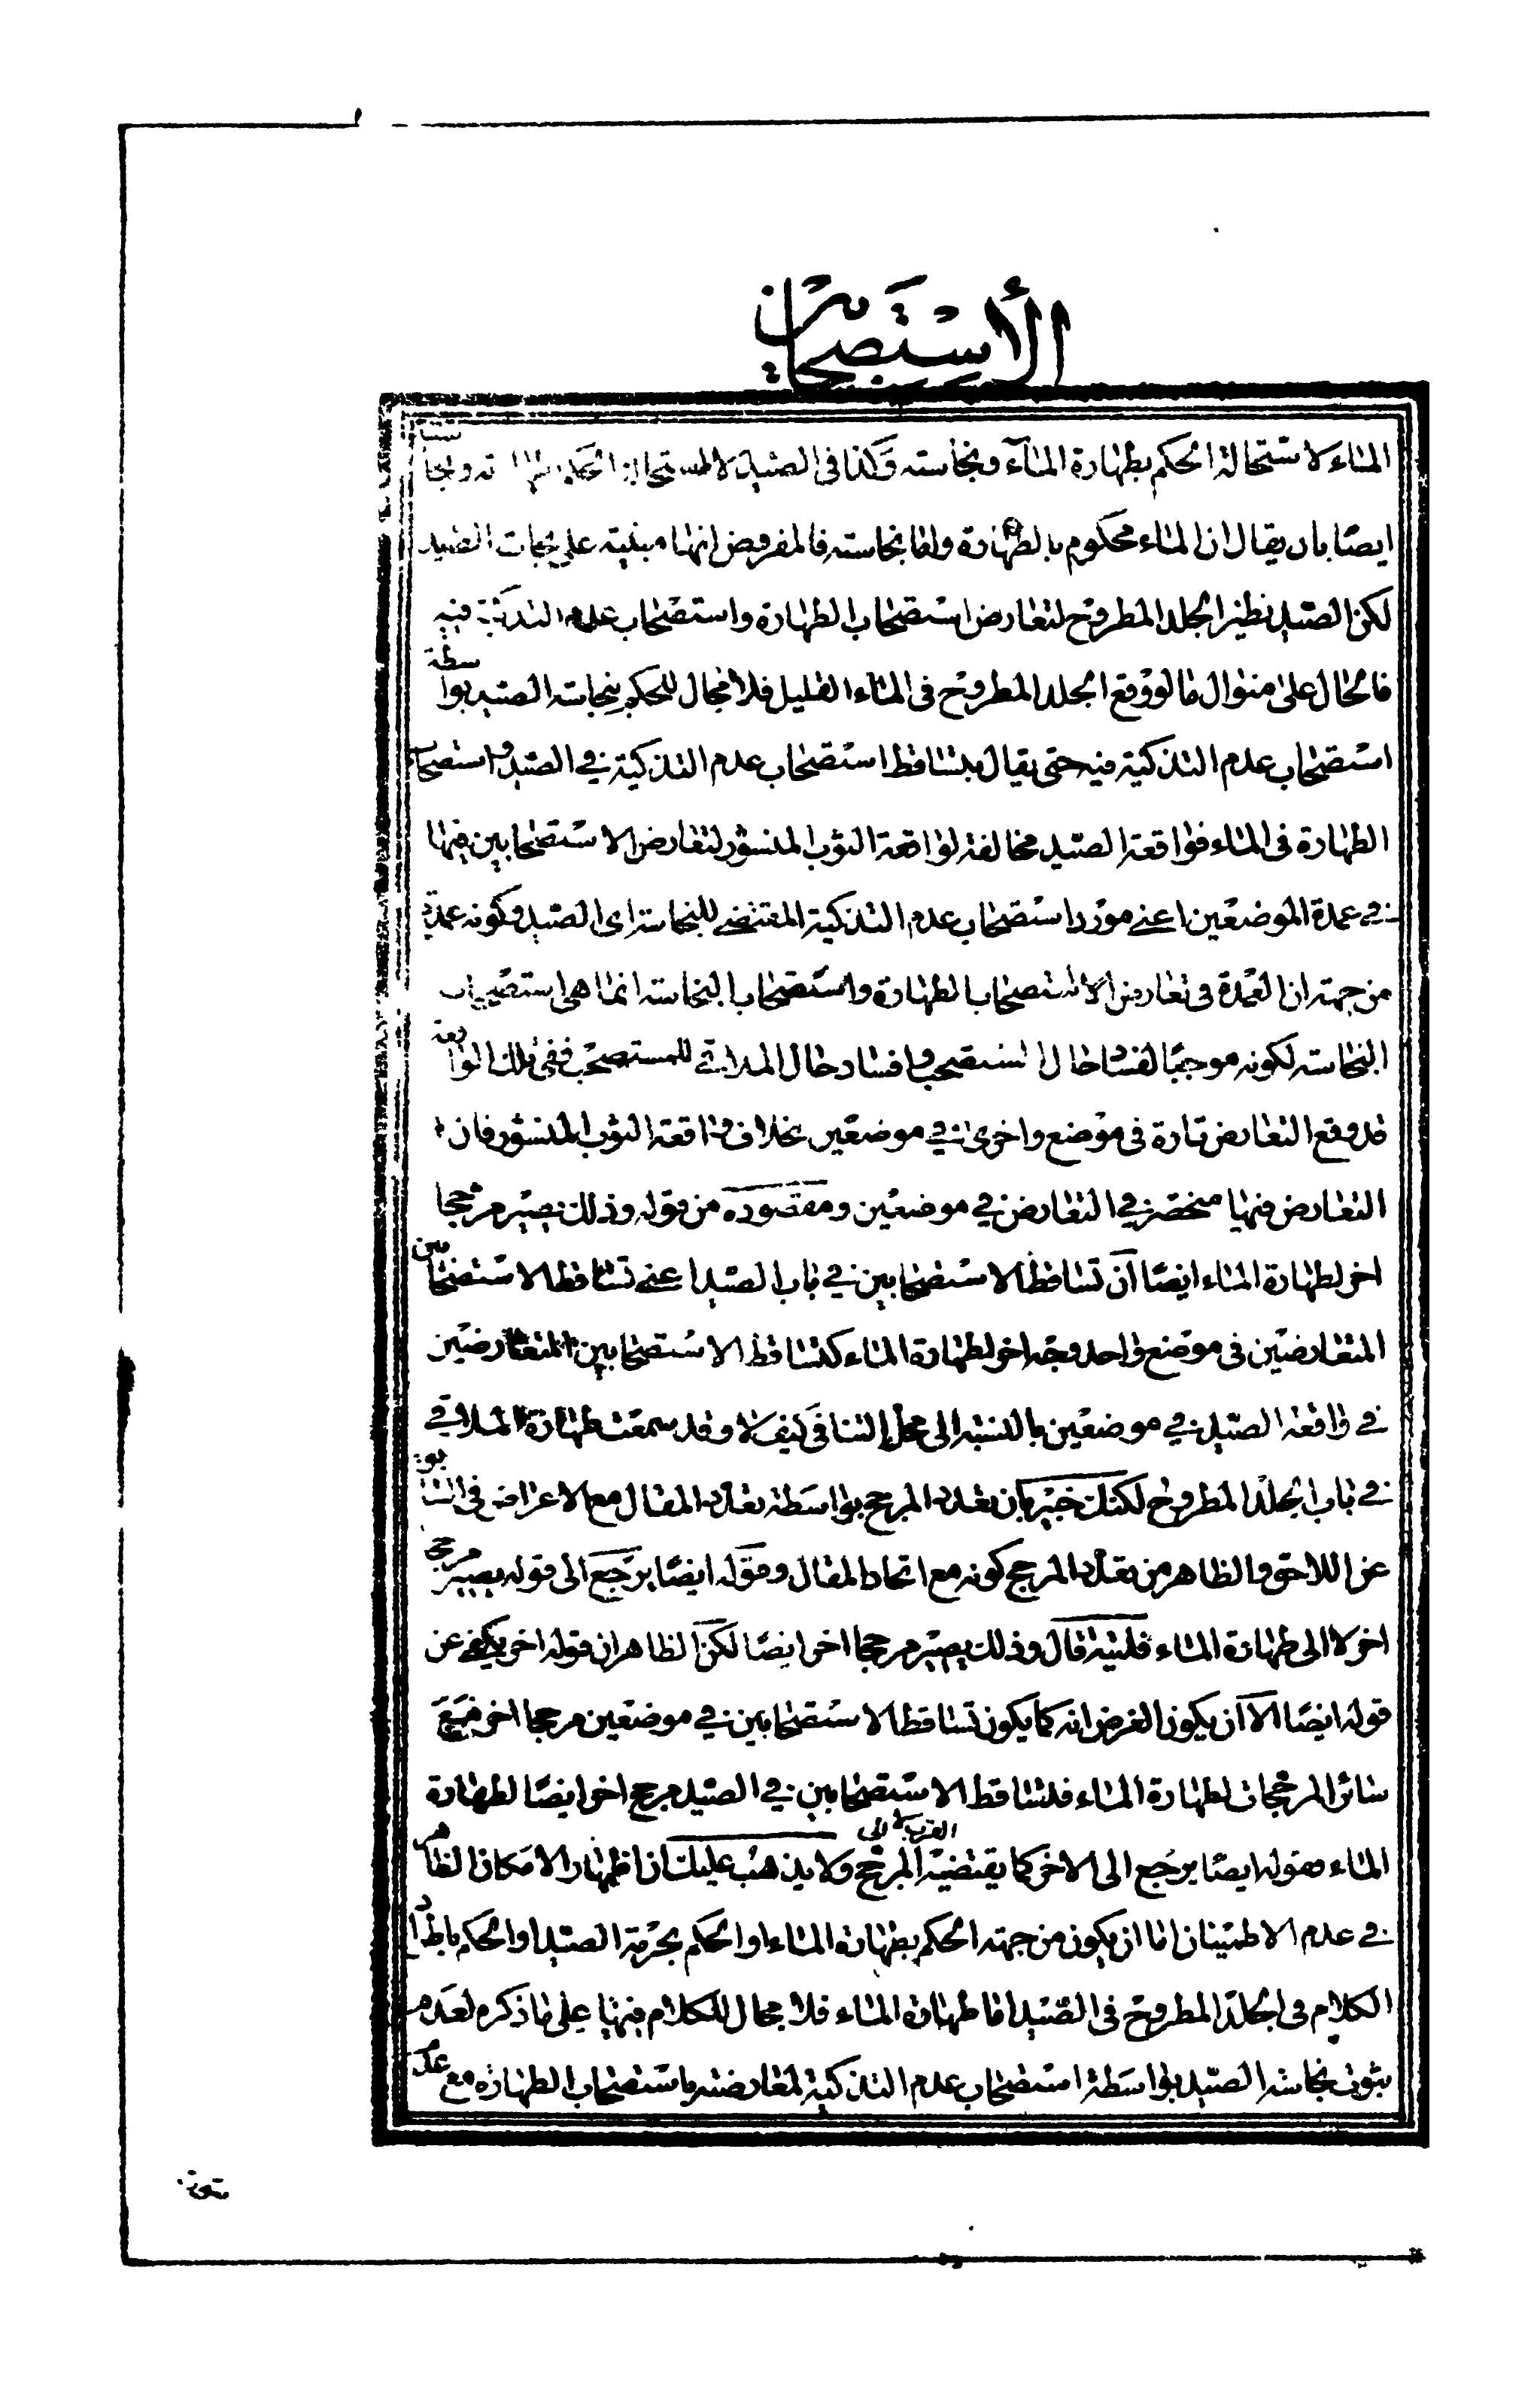 الأستصحاب
الماء لاستحالة الحكم بطهارة الماء ونجاسته وكذا في الصيد لاستحالة الحكم بطهارته ونجاسته
ايضا بان يقال ان الماء محكوم بالطهارة واما نجاسته فالمفروض انها مبنية على نجاسة الصيد
لكن الصيد نظير الجلد المطروح لتعارض استصحاب الطهارة واستصحاب عدم التذكية فيه
فالحال على منوال ما لو وقع الجلد المطروح في الماء القليل فلا مجال للحكم بنجاسة الصيد بواسطة
استصحاب عدم التذكية فيه حتى يقال بتساقط استصحاب عدم التذكية في الصيد واستصحاب
الطهارة في الماء فواقعة الصيد مخالفة لواقعة الثوب المنشور لتعارض الاستصحابين فيها
في عمدة الموضعين اعني مورد استصحاب عدم التذكية المقتضي للنجاسة اى الصيد وكونه عمدة
من جهة ان العمدة في تعارض الاستصحاب الطهارة واستصحاب النجاسة انما هي استصحاب
النجاسة لكونه موجبا لفساد حال المستصحب وافساد حال الملاقي للمستصحب ففي تلك الواقعة
قد وقع التعارض تارة في موضع واخرى في موضعين بخلاف واقعة الثوب المنشور فان
التعارض فيها منحصر في التعارض في موضعين ومقصوده من قوله وذلك يصير مرجحا
اخر لطهارة الماء ايضا ان تساقط الاستصحابين في باب الصيد اعني تساقط الاستصحابين
المتعارضين في موضع واحد وجه اخر لطهارة الماء كتساقط الاستصحابين المتعارضين
في واقعة الصيد في موضعين بالنسبة الى محل التنافي كيف لا وقد سمعت طهارة الملاقي
في باب الجلد المطروح لكنك خبير بان تعدد المرجح بواسطة تعدد المقال مع الاعراض في السابق
عن اللاحق والظاهر من تعدد المرجح كونه مع اتحاد المقال وقوله ايضا يرجع الى قوله يصير مرجحا
اخر لا الى طهارة الماء فكانه قال وذلك يصير مرجحا اخر ايضا لكن الظاهر ان قوله اخر يكفي عن
قوله ايضا الا ان يكون الغرض انه كما يكون تساقط الاستصحابين في موضعين مرجحا اخر مع
سائر المرجحات لطهارة الماء فتساقط الاستصحابين في الصيد مرجح اخر ايضا لطهارة
الماء فقوله ايضا يرجع الى الاخر كما يقتضيه القرب لا الى المرجح ولا يذهب عليك ان اظهار الامكان الظاهر
في عدم الاطمينان اما ان يكون من جهة الحكم بطهارة الماء او الحكم بحرمة الصيد او الحكم باطراد
الكلام في الجلد المطروح في الصيد اما طهارة الماء فلا مجال للكلام فيها على ما ذكره لعدم
ثبوت نجاسة الصيد بواسطة استصحاب عدم التذكية لمعارضته باستصحاب الطهارة مع عدم